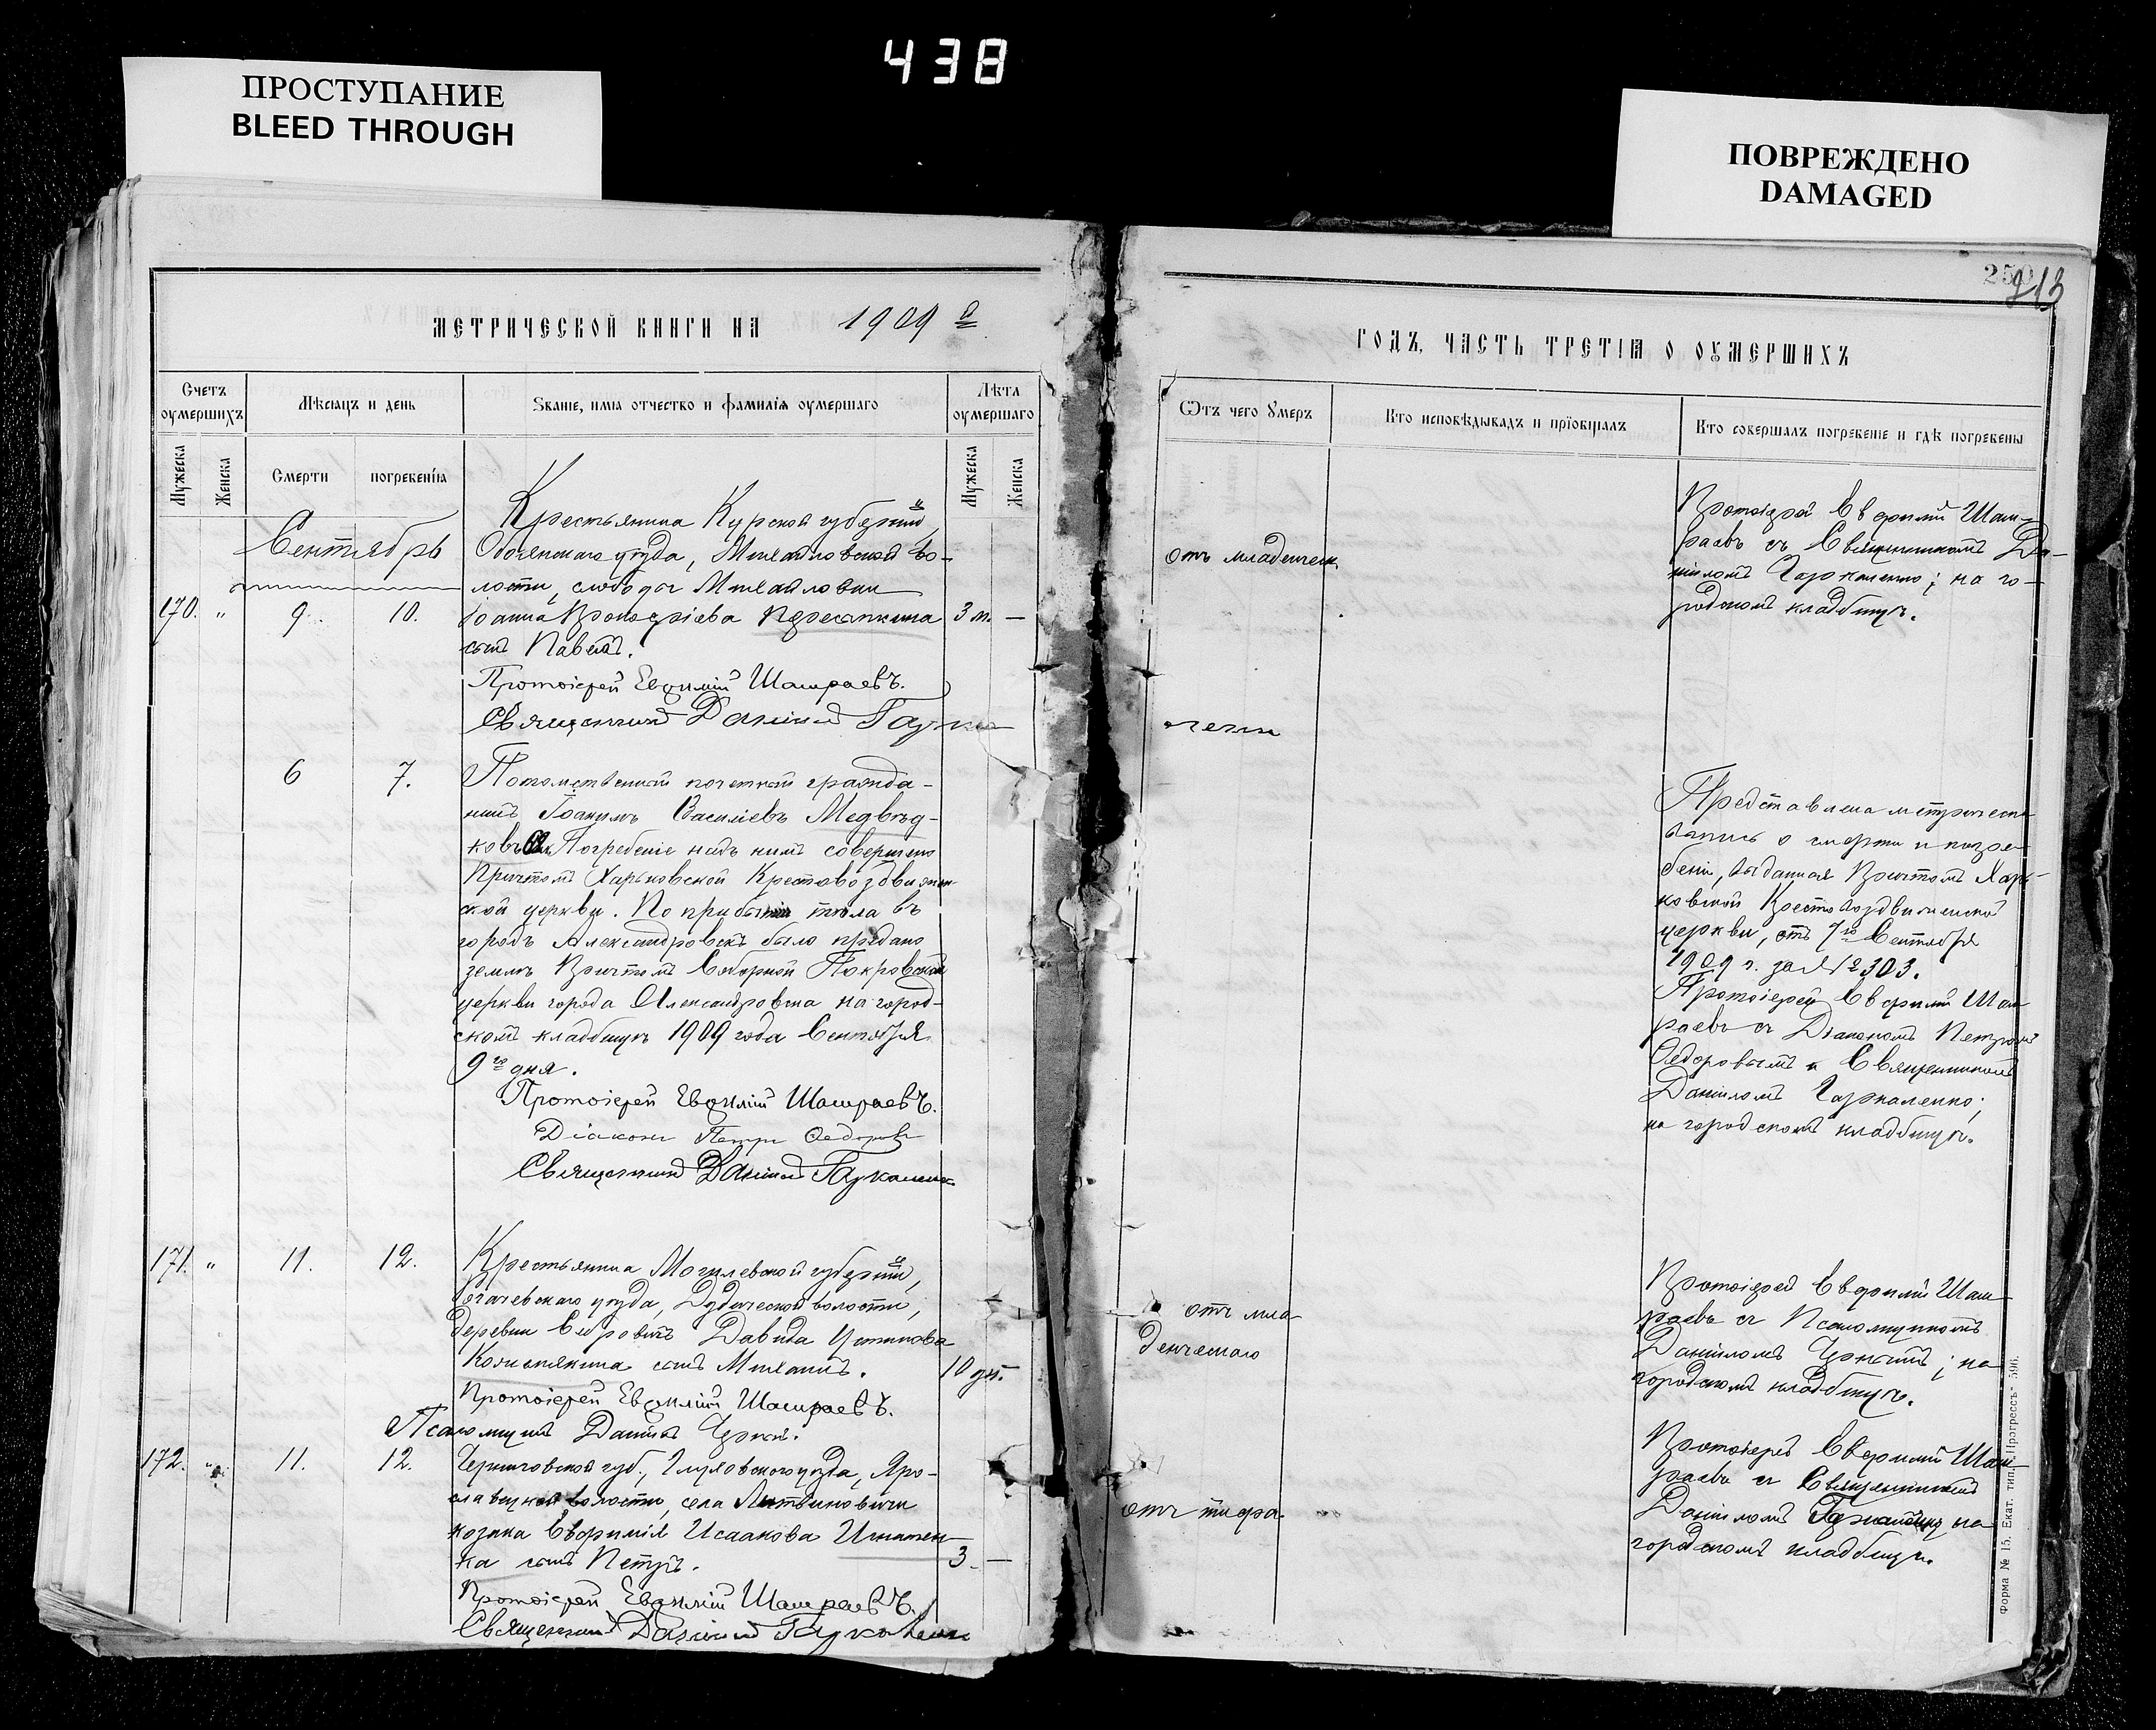 438
ПРОСТУПАНИЕ
BLEED THROUGH
ПОВРЕЖДЕНО
DAMAGED
213
МЕТРИЧЕСКОЙ КНИГИ НА 1909 й
ГОДЪ, ЧАСТЬ ТРЕТІЯ О ОУМЕРШИХЪ
Счетъ оумершихъ
Мѣсяцъ и день
Званіе, имя отчество и фамилія оумершаго
Лѣта оумершаго
Мужеска
Женска
Смерти
погребенія
Мужеска
Женска
Ѿтъ чего ѹмеръ
Кто исповѣдывалъ и пріобщалъ
Кто совершалъ погребеніе и гдѣ погребены
Сентябрь
170. " 9. 10. 3 м. —
Крестьянина Курской губерніи,
Обоянскаго уѣзда, Михайловской во-
лости, слободы Михайловки
Іоанна
сынъ Павелъ.
Протоіерей Евѳимій Шамраевъ.
Священникъ Даніилъ
отъ младенческ.
Протоіерей Евфимій Шам-
раевъ съ Священникомъ Да-
ніиломъ Гаркаленко; на го-
родскомъ кладбищѣ.
6 7.
Потомственный почетный гражда-
нинъ Іоакимъ Василіевъ Медвѣд-
ковъ. Погребеніе надъ нимъ совершено
Причтомъ Харьковской Крестовоздвижен-
ской церкви. По прибытіи тѣла въ
городъ Александровскъ было предано
землѣ Причтомъ Соборной Покровской
церкви города Александровска на город-
скомъ кладбищѣ 1909 года Сентября
9го дня.
Протоіерей Евѳимій Шамраевъ.
Діаконъ Петръ Ѳедоровъ
Священникъ Даніилъ Гаркаленко
отъ
Представлена метрическ
запись о смерти и погре-
беніи, выданная Причтомъ Харь-
ковской Крестовоздвиженской
церкви, отъ 7го Сентября
1909 г. за № 303.
Протоіерей Евфимій Шам-
раевъ съ Діакономъ Петромъ
Ѳедоровымъ и Священникомъ
Даніиломъ Гаркаленко;
на городскомъ кладбищѣ.
171. " 11. 12. 10 дн.
Крестьянина Могилевской губерніи,
Рогачевскаго уѣзда, Дудической волости,
деревни Давида Устинова
сынъ Михаилъ.
Протоіерей Евѳимій Шамраевъ.
Псаломщикъ Даніилъ
отъ мла-
денческаго
Протоіерей Евфимій Шам-
раевъ съ Псаломщикомъ
Даніиломъ ; на
городскомъ кладбищѣ.
172. " 11. 12. 3 —
Черниговской губ., Глуховского уѣзда, Яро-
славецкой волости, села Литвиновичи
козака Евфимія Исаакова Игнатен-
ка сынъ Петръ.
Протоіерей Евѳимій Шамраевъ.
Священникъ Даніилъ Гаркаленко
отъ тифа.
Протоіерей Евфимій Шам-
раевъ съ Священникомъ
Даніиломъ на
городскомъ кладбищѣ.
Форма № 15. Екат. тип. "Прогрессъ" 596.